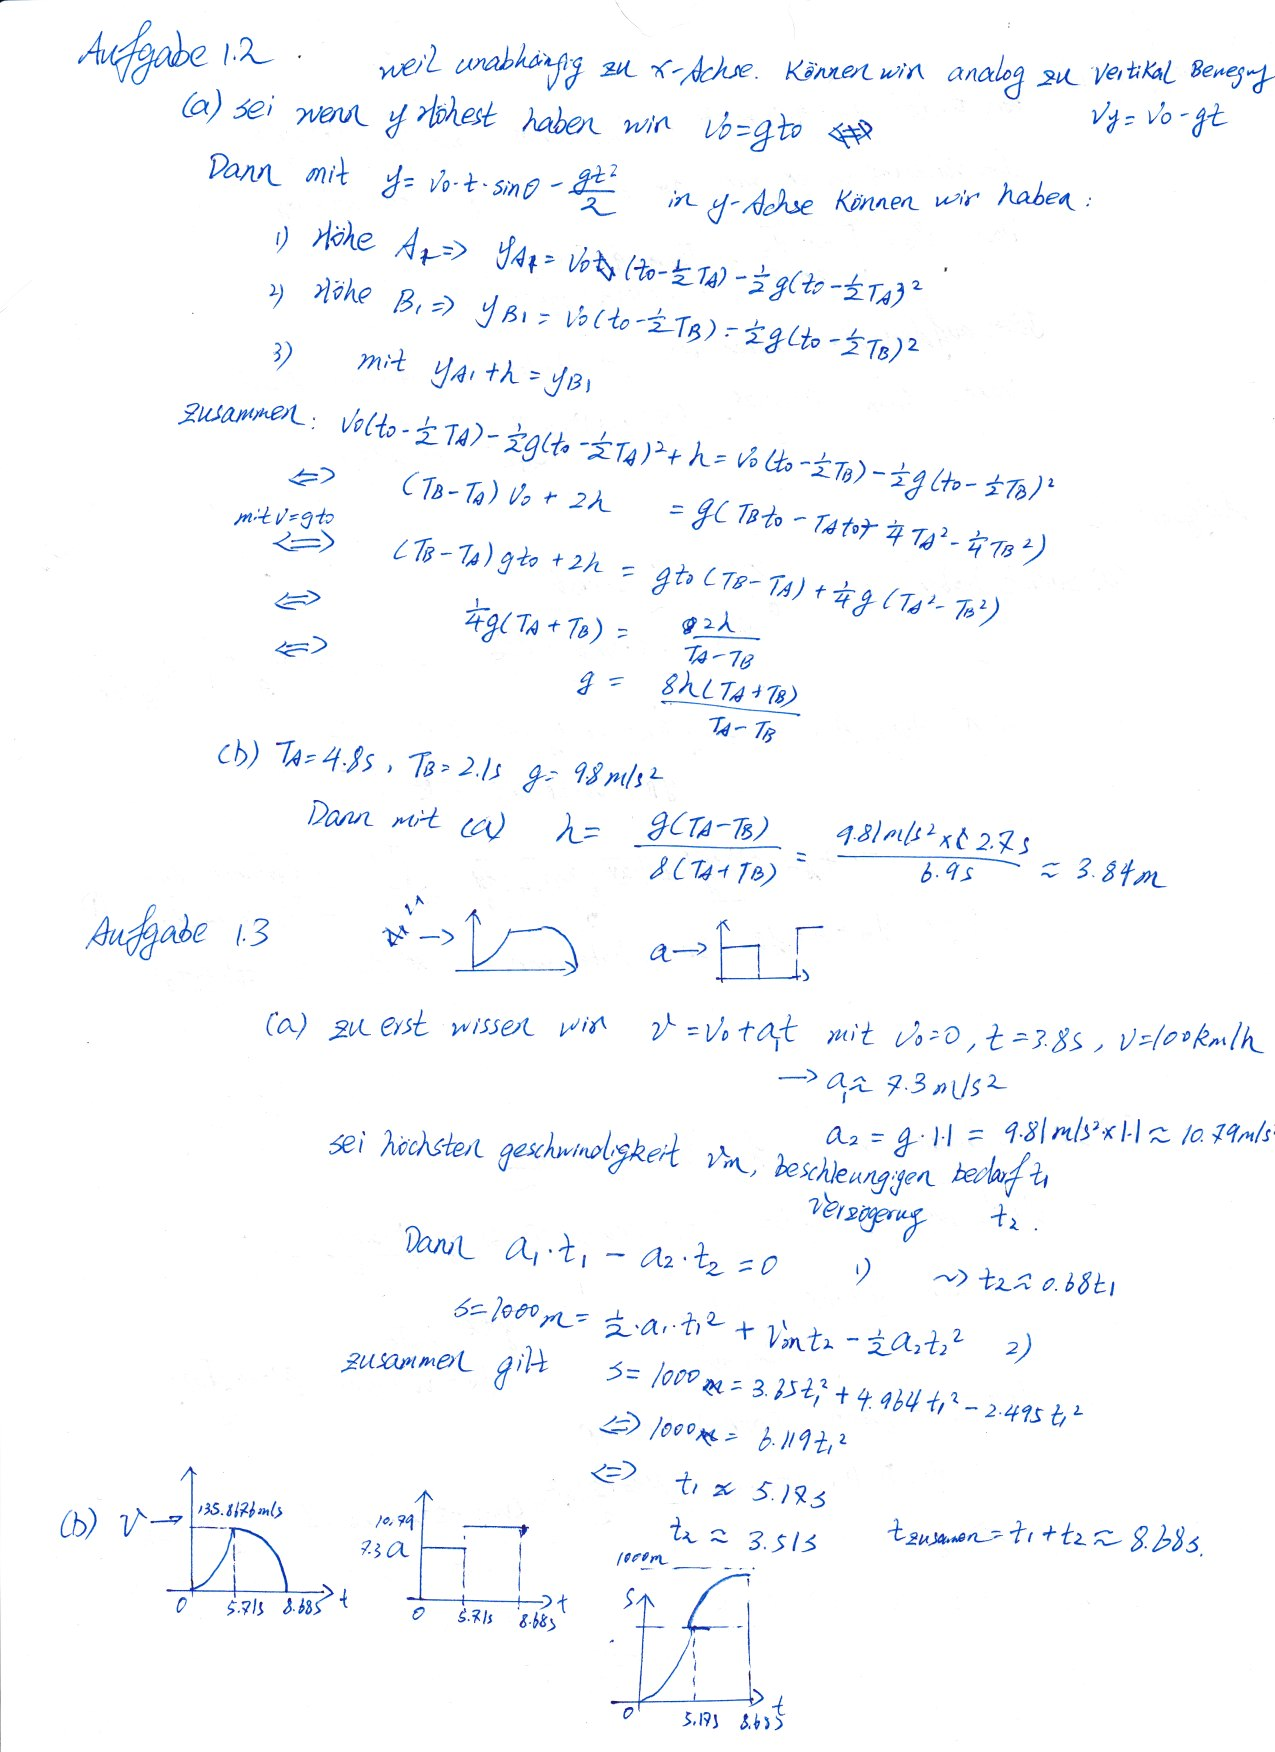 Aufgabe 1.2 .
weil unabhängig zu x-Achse. Können wir analog zu Vertikal Bewegung
(a) sei wenn y Höhest haben wir v₀=gt₀ ⇔
Vy = V₀ - gt
Dann mit y = v₀·t·sinθ - gt²/2 in y-Achse können wir haben:
1) Höhe A₁ ⇒ yA₁ = V₀(t₀-½TA) - ½g(t₀-½TA)²
2) Höhe B₁ ⇒ yB₁ = V₀(t₀-½TB) - ½g(t₀-½TB)²
3) mit yA₁ + h = yB₁
Zusammen: V₀(t₀-½TA) - ½g(t₀-½TA)² + h = V₀(t₀-½TB) - ½g(t₀-½TB)²
⇔ (TB-TA)V₀ + 2h = g(TBt₀ - TAt₀ + ¼TA² - ¼TB²)
mit v=gt₀
⇔ (TB-TA)gt₀ + 2h = gt₀(TB-TA) + ¼g(TA²-TB²)
⇔ ¼g(TA+TB) = 2h/(TA-TB)
⇔ g = 8h(TA+TB)/(TA-TB)
(b) TA=4.8s, TB=2.1s g= 9.8m/s²
Dann mit (a) h = g(TA-TB)/8(TA+TB) = 9.81m/s²×(2.7s/6.9s ≈ 3.84m
Aufgabe 1.3
a →
(a) zu erst wissen wir v=v₀+a₁t mit v₀=0, t=3.8s, v=100km/h
→ a₁≈ 7.3m/s²
a₂ = g·1.1 = 9.81m/s²×1.1 ≈ 10.79m/s²
sei höchsten geschwindigkeit vm, beschleungigen bedarf t₁
Verzögerug t₂.
Dann a₁·t₁ - a₂·t₂ = 0 1) ⇝ t₂ ≈ 0.68t₁
s=1000m = ½·a₁·t₁² + Vmt₂ - ½a₂t₂² 2)
zusammen gilt s=1000m = 3.65t₁² + 4.964t₁² - 2.495t₁²
⇔ 1000m = 6.119t₁²
⇔ t₁ ≈ 5.17s
t₂ ≈ 3.51s tzusamen = t₁+t₂ ≈ 8.68s.
(b) v → 135.8676m/s
0 5.71s 8.68s t
10.79
7.3 a
0 5.71s 8.68s t
1000m
S
0 5.17s 8.68s t